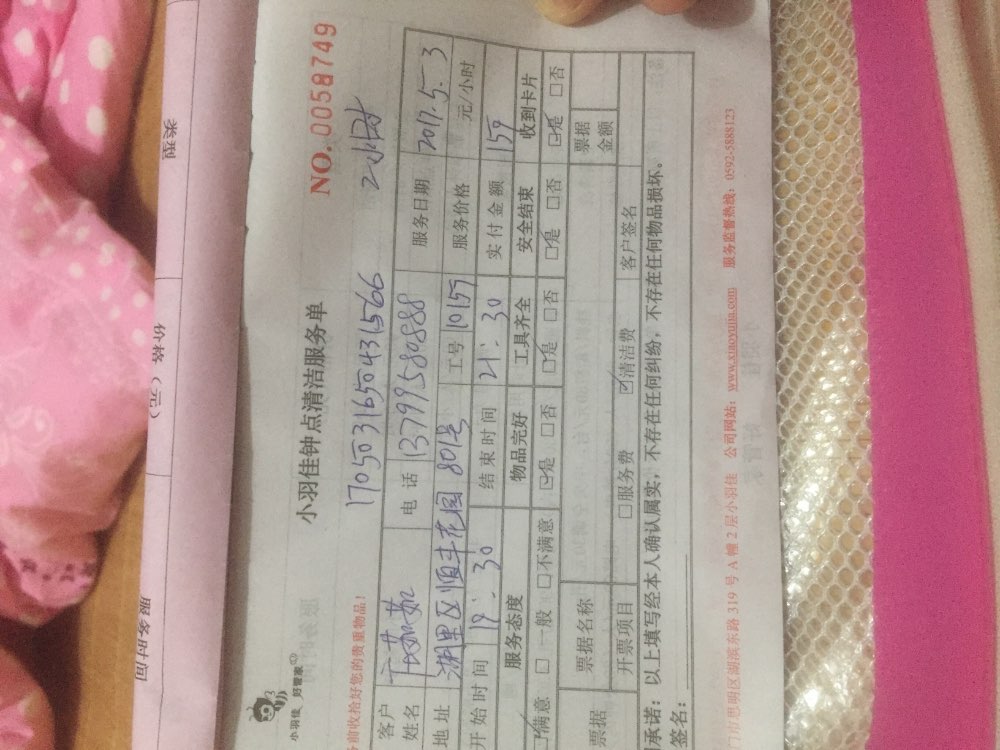 类型
价格（元）
服务时间
小羽佳 好管家
小羽佳钟点清洁服务单
NO.0058749
务前收拾好您的贵重物品!
1705031650431566 2小时
客户姓名 电话 13799580888 服务日期 2017.5.3
地址 湖里区顺丰花园801号 工号 10157 服务价格 元/小时
开始时间 19:30 结束时间 21:30 实付金额 159
服务态度 物品完好 工具齐全 安全结束 收到卡片
☑满意 □一般 □不满意 ☑是 □否 ☑是 □否 ☑是 □否 ☑是 □否
票据 票据名称 票据金额
开票项目 □服务费 ☑清洁费 客户签名
承诺：以上填写经本人确认属实，不存在任何纠纷，不存在任何物品损坏。
签名：
门市思明区湖滨东路319号A幢2层小羽佳 公司网站：www.xiaoyujia.com 服务监督热线：0592-5888123